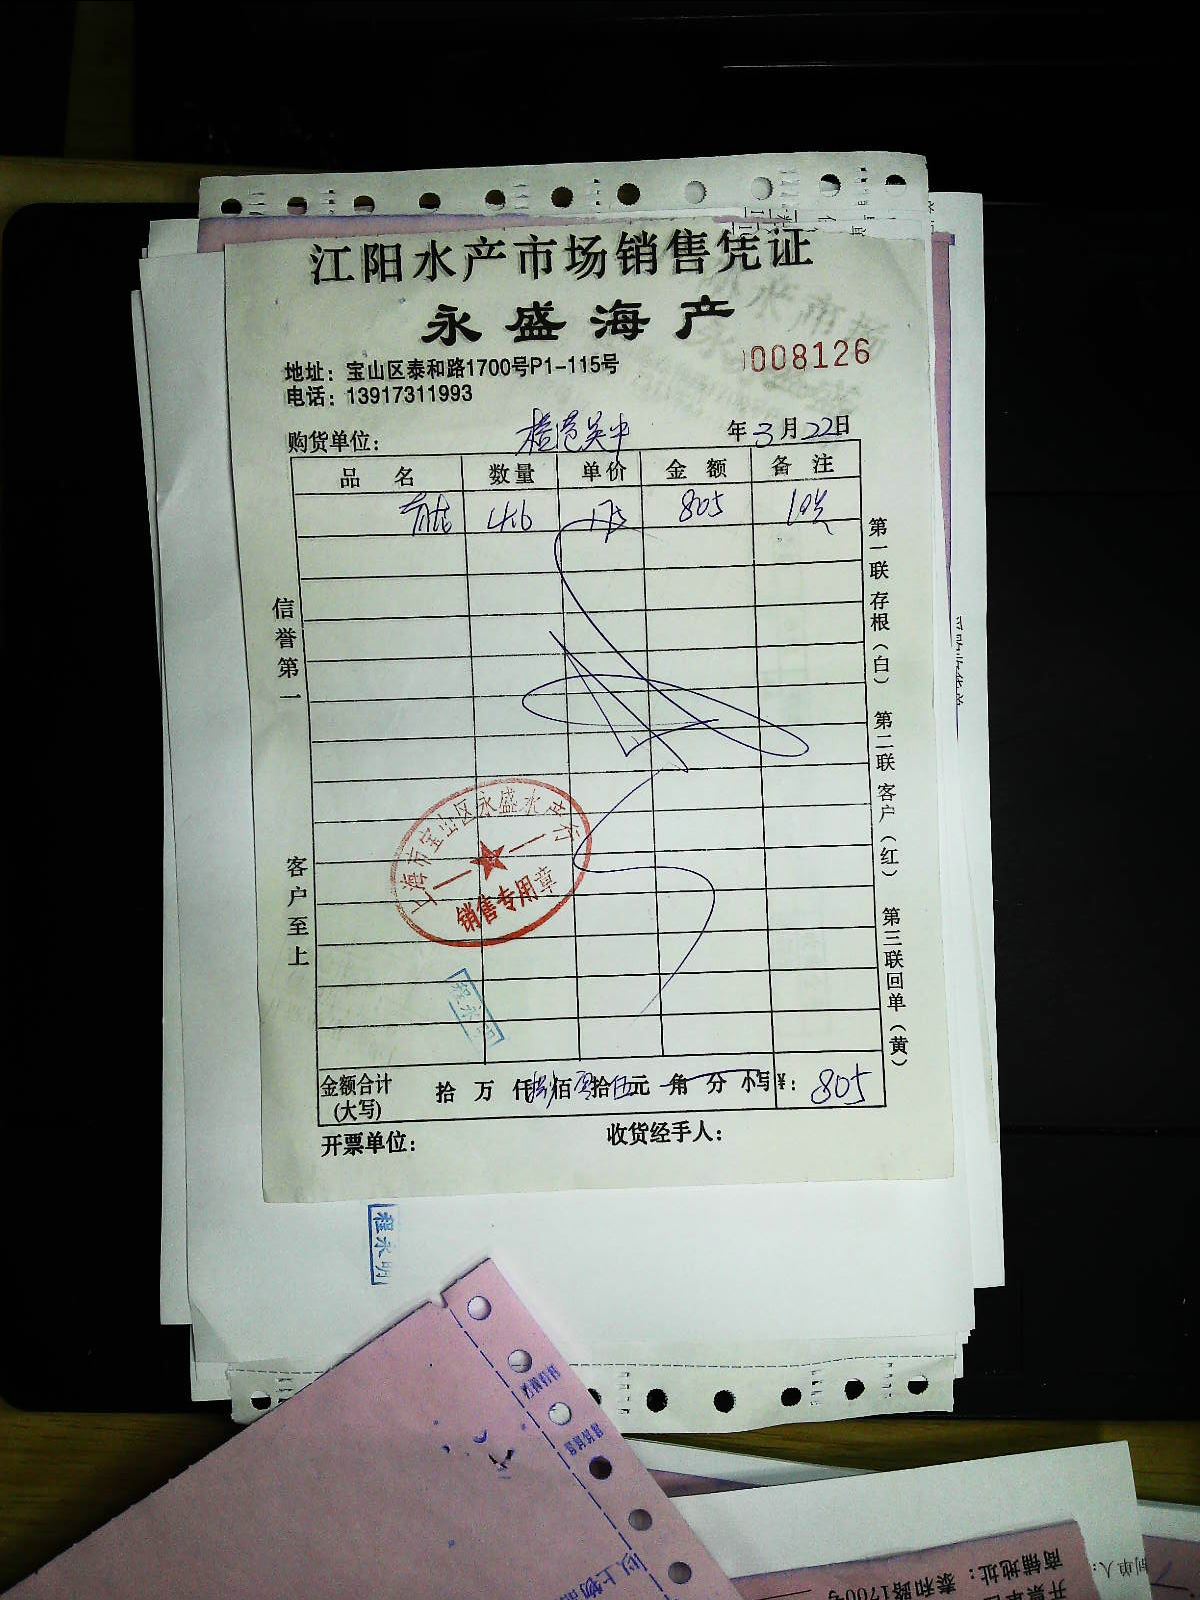 江阳水产市场销售凭证
永盛海产
地址：宝山区泰和路1700号P1-115号
008126
电话：13917311993
购货单位：
年3月22日
品 名 数量 单价 金额 备注
4.6 175 805
信誉第一
客户至上
第一联 存根（白） 第二联 客户（红） 第三联 回单（黄）
上海市宝山区永盛水产行
销售专用章
金额合计 拾 万 仟捌佰零拾伍元 角 分 小写¥：805
(大写)
开票单位： 收货经手人：
程永明
以上物
制单人：
商铺地址：泰和路1700号